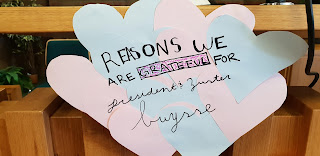 REASONS WE
ARE GRATEFUL FOR
president
buysse